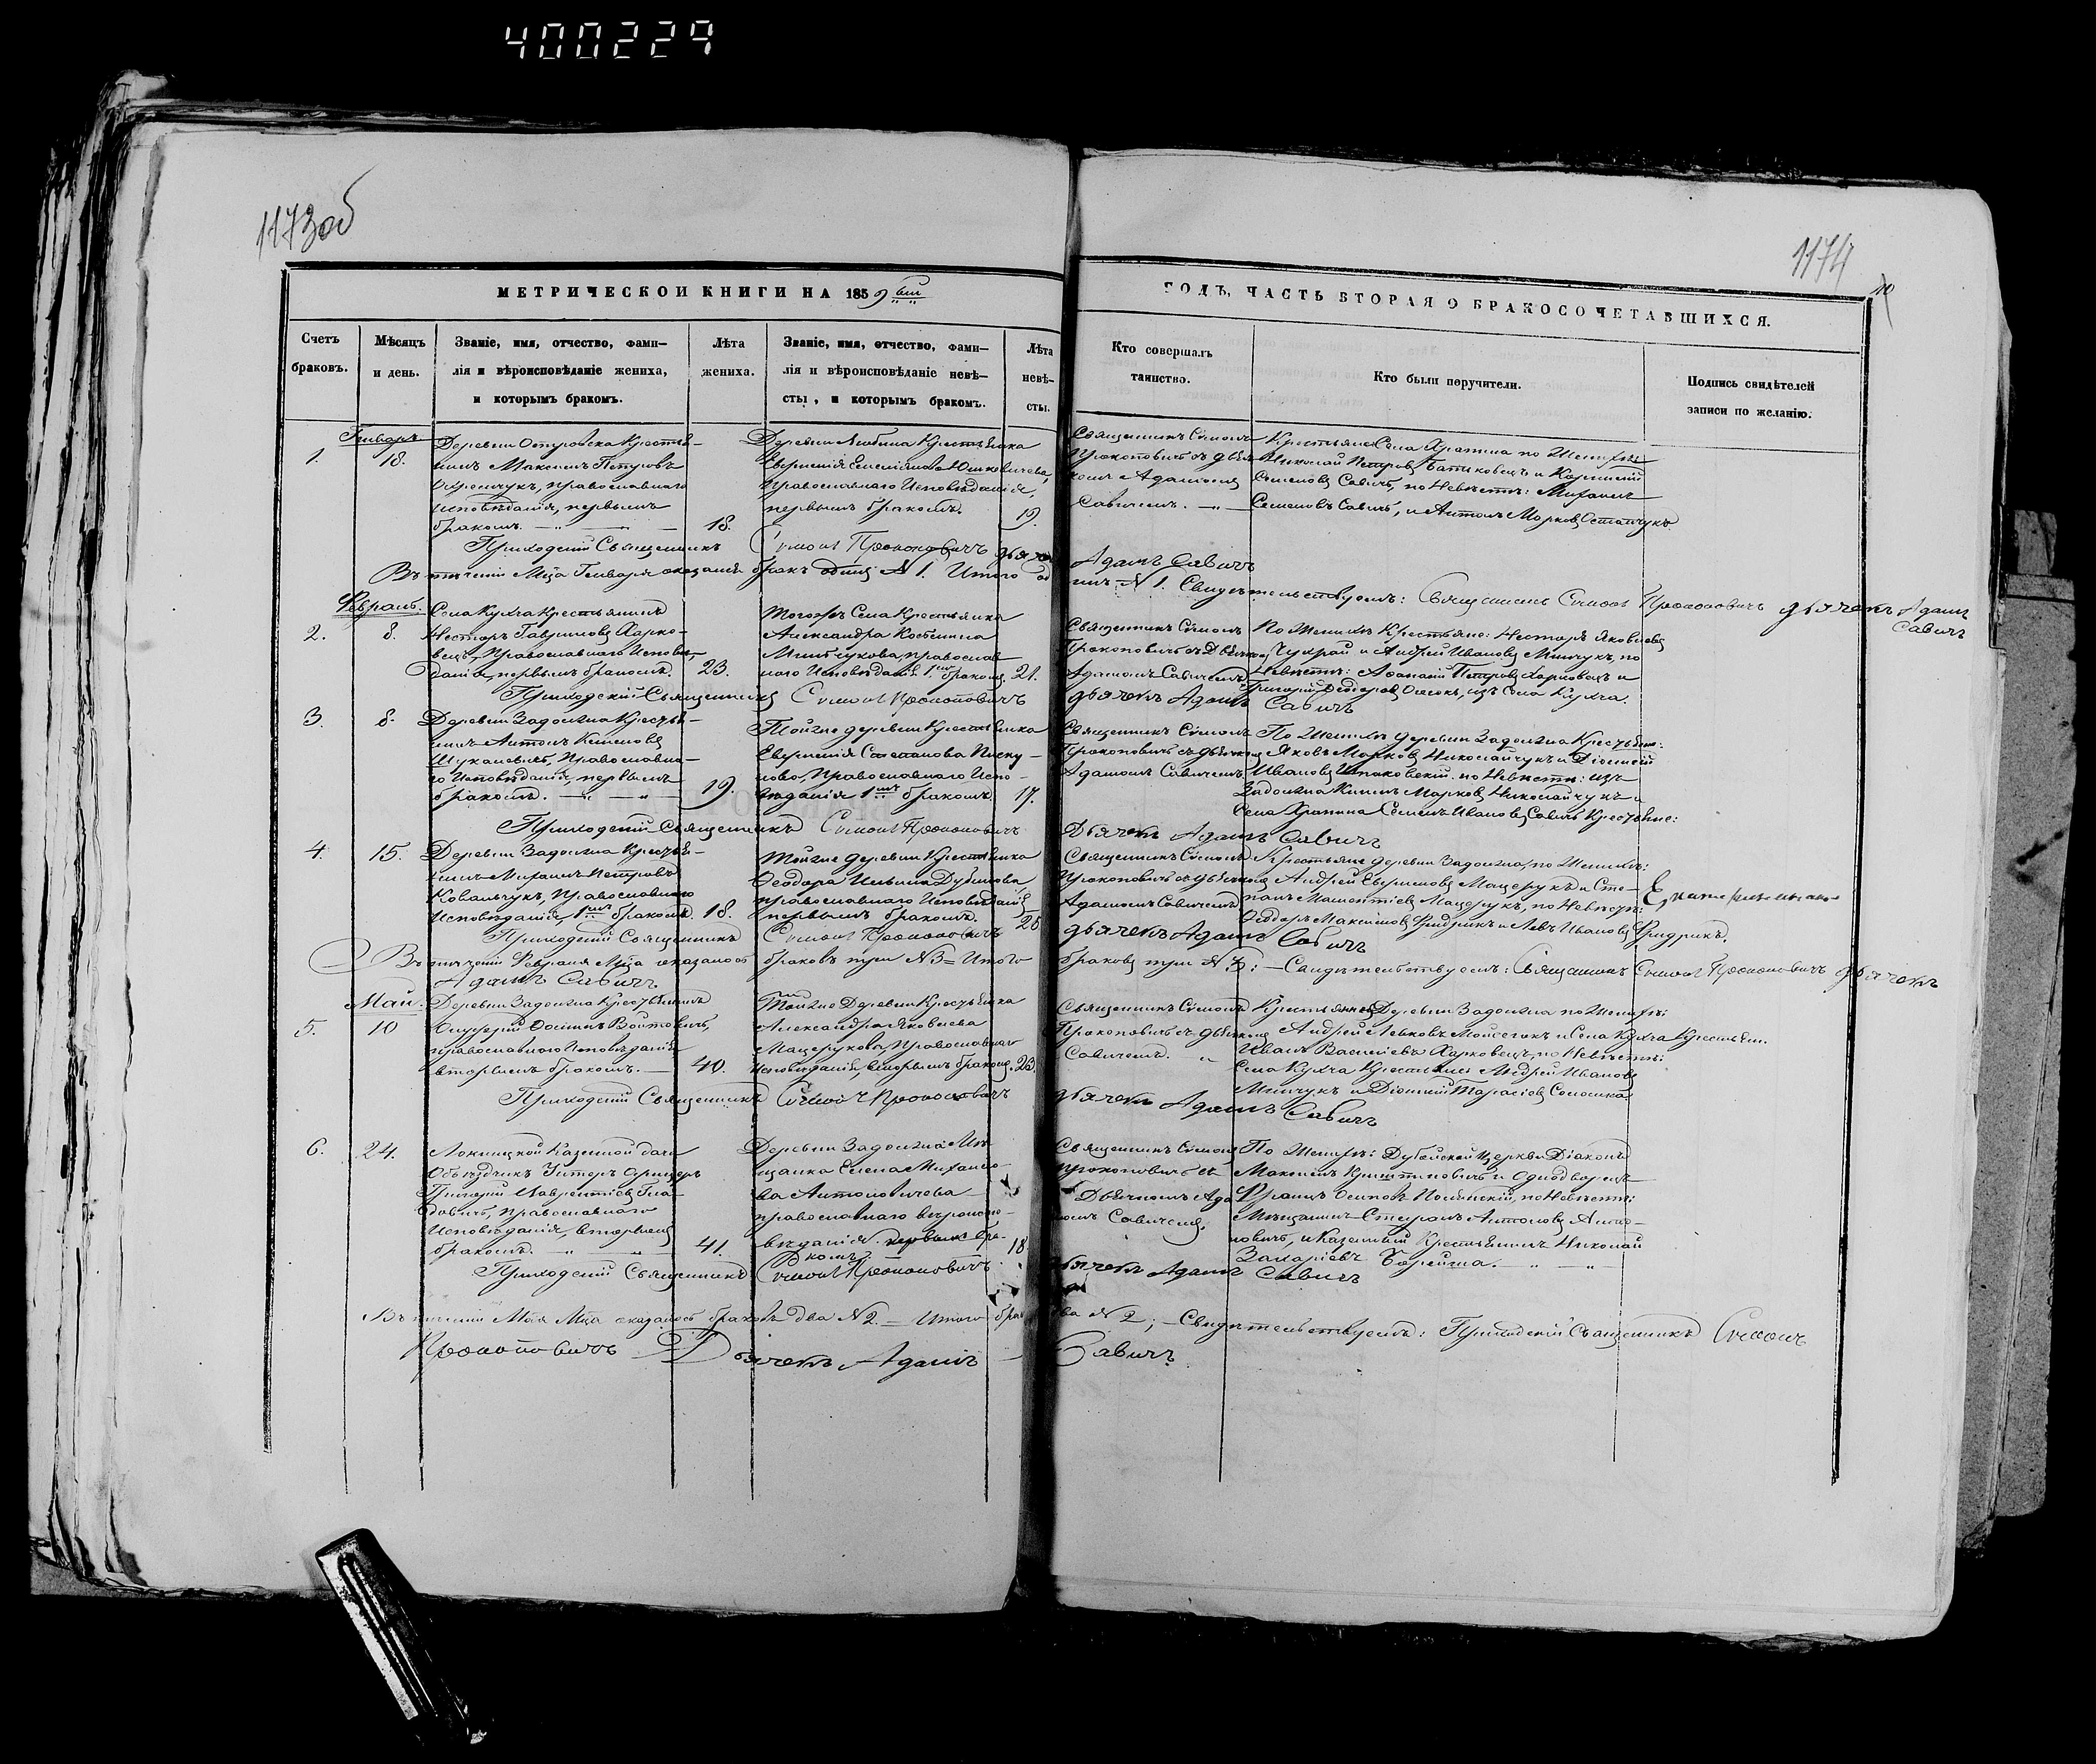 400229
1173об
1174
МЕТРИЧЕСКОЙ КНИГИ НА 1859 ый
ГОДЪ, ЧАСТЬ ВТОРАЯ О БРАКОСОЧЕТАВШИХСЯ.
Счетъ браковъ.
Мѣсяцъ и день.
Званіе, имя, отчество, фами-
лія и вѣроисповѣданіе жениха,
и которымъ бракомъ.
Лѣта жениха.
Званіе, имя, отчество, фами-
лія и вѣроисповѣданіе невѣ-
сты, и которымъ бракомъ.
Лѣта невѣ-
сты.
Кто совершалъ
таинство.
Кто были поручители.
Подпись свидѣтелей
записи по желанію.
Генварь
1. 18.
Деревни Островска Крестья-
нинъ Максимъ Петровъ
православнаго
Исповѣданія, первымъ
бракомъ. 18.
Деревни Любина Крестьянка
Евгенія Емеліянова Юшкевичева,
Православнаго Исповѣданія,
первымъ бракомъ. 19.
Священникъ Сѵмонъ
Прокоповичъ съ дьяч-
комъ Адамомъ
Савичемъ.
Крестьяне Села Храпина по Женихѣ
Николай Петровъ Батиковецъ и Корнилій
Семеновъ Савичъ, по Невѣстѣ: Михаилъ
Семеновъ Савичъ, и Антонъ Марковъ Остапчукъ
Приходскій Священникъ Сѵмонъ Прокоповичъ дьячекъ Адамъ Савичъ
Въ теченіи Мца Генваря оказался бракъ одинъ N 1. Итого од
инъ N 1. Свидѣтельствуемъ: Священникъ Сѵмонъ Прокоповичъ дьячекъ Адамъ
Савичъ
Февраль.
2. 8.
Села Кухча Крестьянинъ
Несторъ Гавриловъ Харко-
вецъ, Православнаго Исповѣ-
данія, первымъ бракомъ. 23.
Тогожъ Села Крестьянка
Александра Косьмина
Минчукова, православ
наго Исповѣданія 1мъ бракомъ. 21.
Священникъ Сѵмонъ
Прокоповичъ съ Дьячкомъ
Адамомъ Савичемъ
По Женихѣ Крестьяне: Несторъ Яковлевъ
Чухрай и Андрей Ивановъ Минчукъ, по
Невѣстѣ: Афанасій Петровъ Харковецъ и
Григорій Федоровъ изъ Села Кухча.
Приходскій Священникъ Сѵмонъ Прокоповичъ
дьячекъ Адамъ Савичъ
3. 8.
Деревни Задолжа Крестья-
нинъ Антонъ Кипловъ
Шукаловичъ, Православна-
го Исповѣданія, первымъ
бракомъ. 19.
Тойже деревни Крестьянка
Евгенія Степанова Писку-
нова, Православнаго Испо-
вѣданія 1мъ бракомъ. 17.
Священникъ Сѵмонъ
Прокоповичъ съ дьячкомъ
Адамомъ Савичемъ
По Женихѣ деревни Задолжа Крестьяне:
Яковъ Марковъ Николайчукъ и Діонисій
Ивановъ Шпаковскій. по Невѣстѣ: изъ
Задолжа Киллъ Марковъ Николайчукъ и
Села Храпина Семенъ Ивановъ Савичъ Крестьяне:
Приходскій Священникъ Сѵмонъ Прокоповичъ
Дьячекъ Адамъ Савичъ
4. 15.
Деревни Задолжа Крестья-
нинъ Михаилъ Петровъ
Ковальчукъ, Православнаго
Исповѣданія, 1мъ бракомъ. 18.
Тойже деревни Крестьянка
Феодора Ильина Дубинова
православнаго Исповѣданія
первымъ бракомъ. 20
Священникъ Сѵмонъ
Прокоповичъ съ дьячкомъ
Адамомъ Савичемъ
Крестьяне деревни Задолжа, по Женихѣ:
Андрей Евфимовъ Мацерукъ и Сте-
панъ Мацерукъ, по Невѣстѣ:
Феодоръ Максимовъ Фридрикъ и Левъ Ивановъ Фридрикъ.
Приходскій Священникъ Сѵмонъ Прокоповичъ
дьячекъ Адамъ Савичъ
Въ теченіи Февраля Мца оказалось браковъ три N 3 = Итого
браковъ три N 3: — Свидѣтельствуемъ: Священникъ Сѵмонъ Прокоповичъ дьячекъ
Адамъ Савичъ
Май.
5. 10
Деревни Задолжа Крестьянинъ
Онуфрій Фоминъ Войтовичъ,
православнаго Исповѣданія
вторымъ бракомъ. 40.
Тойже Деревни Крестьянка
Александра Яковлева
Мацерукова, Православнаго
Исповѣданія, вторымъ бракомъ. 23.
Священникъ Сѵмонъ
Прокоповичъ съ дьячкомъ
Савичемъ.
Крестьяне Деревни Задолжа по Женихѣ:
Андрей Левковъ и Села Кухча Крестьян.
Иванъ Василіевъ Харковецъ, по Невѣстѣ:
Села Кухча Крестьяне Андрей Ивановъ
Минчукъ и Діонисій Тарасіевъ
Приходскій Священникъ Сѵмонъ Прокоповичъ
дьячекъ Адамъ Савичъ
6. 24.
Локницкой Казенной дачи
Объѣздчикъ Унтеръ Офицеръ
Григорій Лаврентіевъ
православнаго
Исповѣданія, вторымъ
бракомъ. 41.
Деревни Задолжа Мѣ-
щанка Елена Михайло-
ва Антоновичева
православнаго вѣроиспо-
вѣданія первымъ бра-
комъ 18.
Священникъ Сѵмонъ
Прокоповичъ съ
Дьячкомъ Ада
момъ Савичемъ.
По Женихѣ: Дубейской Церкви Діаконъ
Максимъ и Однодворецъ
Францъ Осиповъ по Невѣстѣ:
Мѣщанинъ Стефанъ Антоновъ Анто-
новичъ, и Казенный Крестьянинъ Николай
Захаріевъ
Приходскій Священникъ Сѵмонъ Прокоповичъ
дьячекъ Адамъ Савичъ
Въ теченіи Мая Мца оказалось браковъ два N 2. — Итого брак
ва N 2; — Свидѣтельствуемъ: Приходскій Священникъ Сѵмонъ
Прокоповичъ Дьячекъ Адамъ Савичъ.